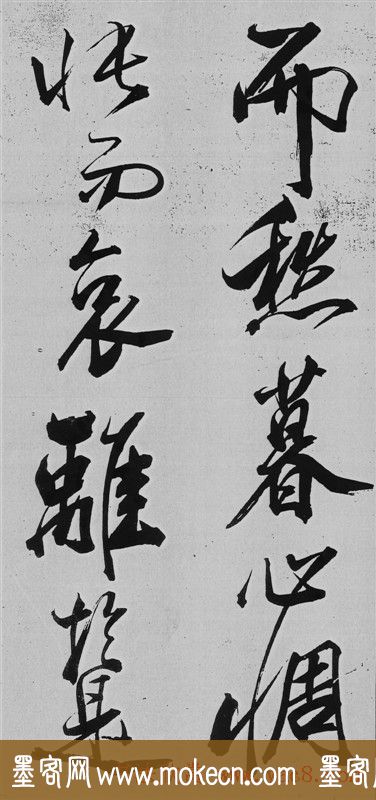 而愁暮心惆
悵而哀離於是
墨客网 www.mokecn.com 墨客网